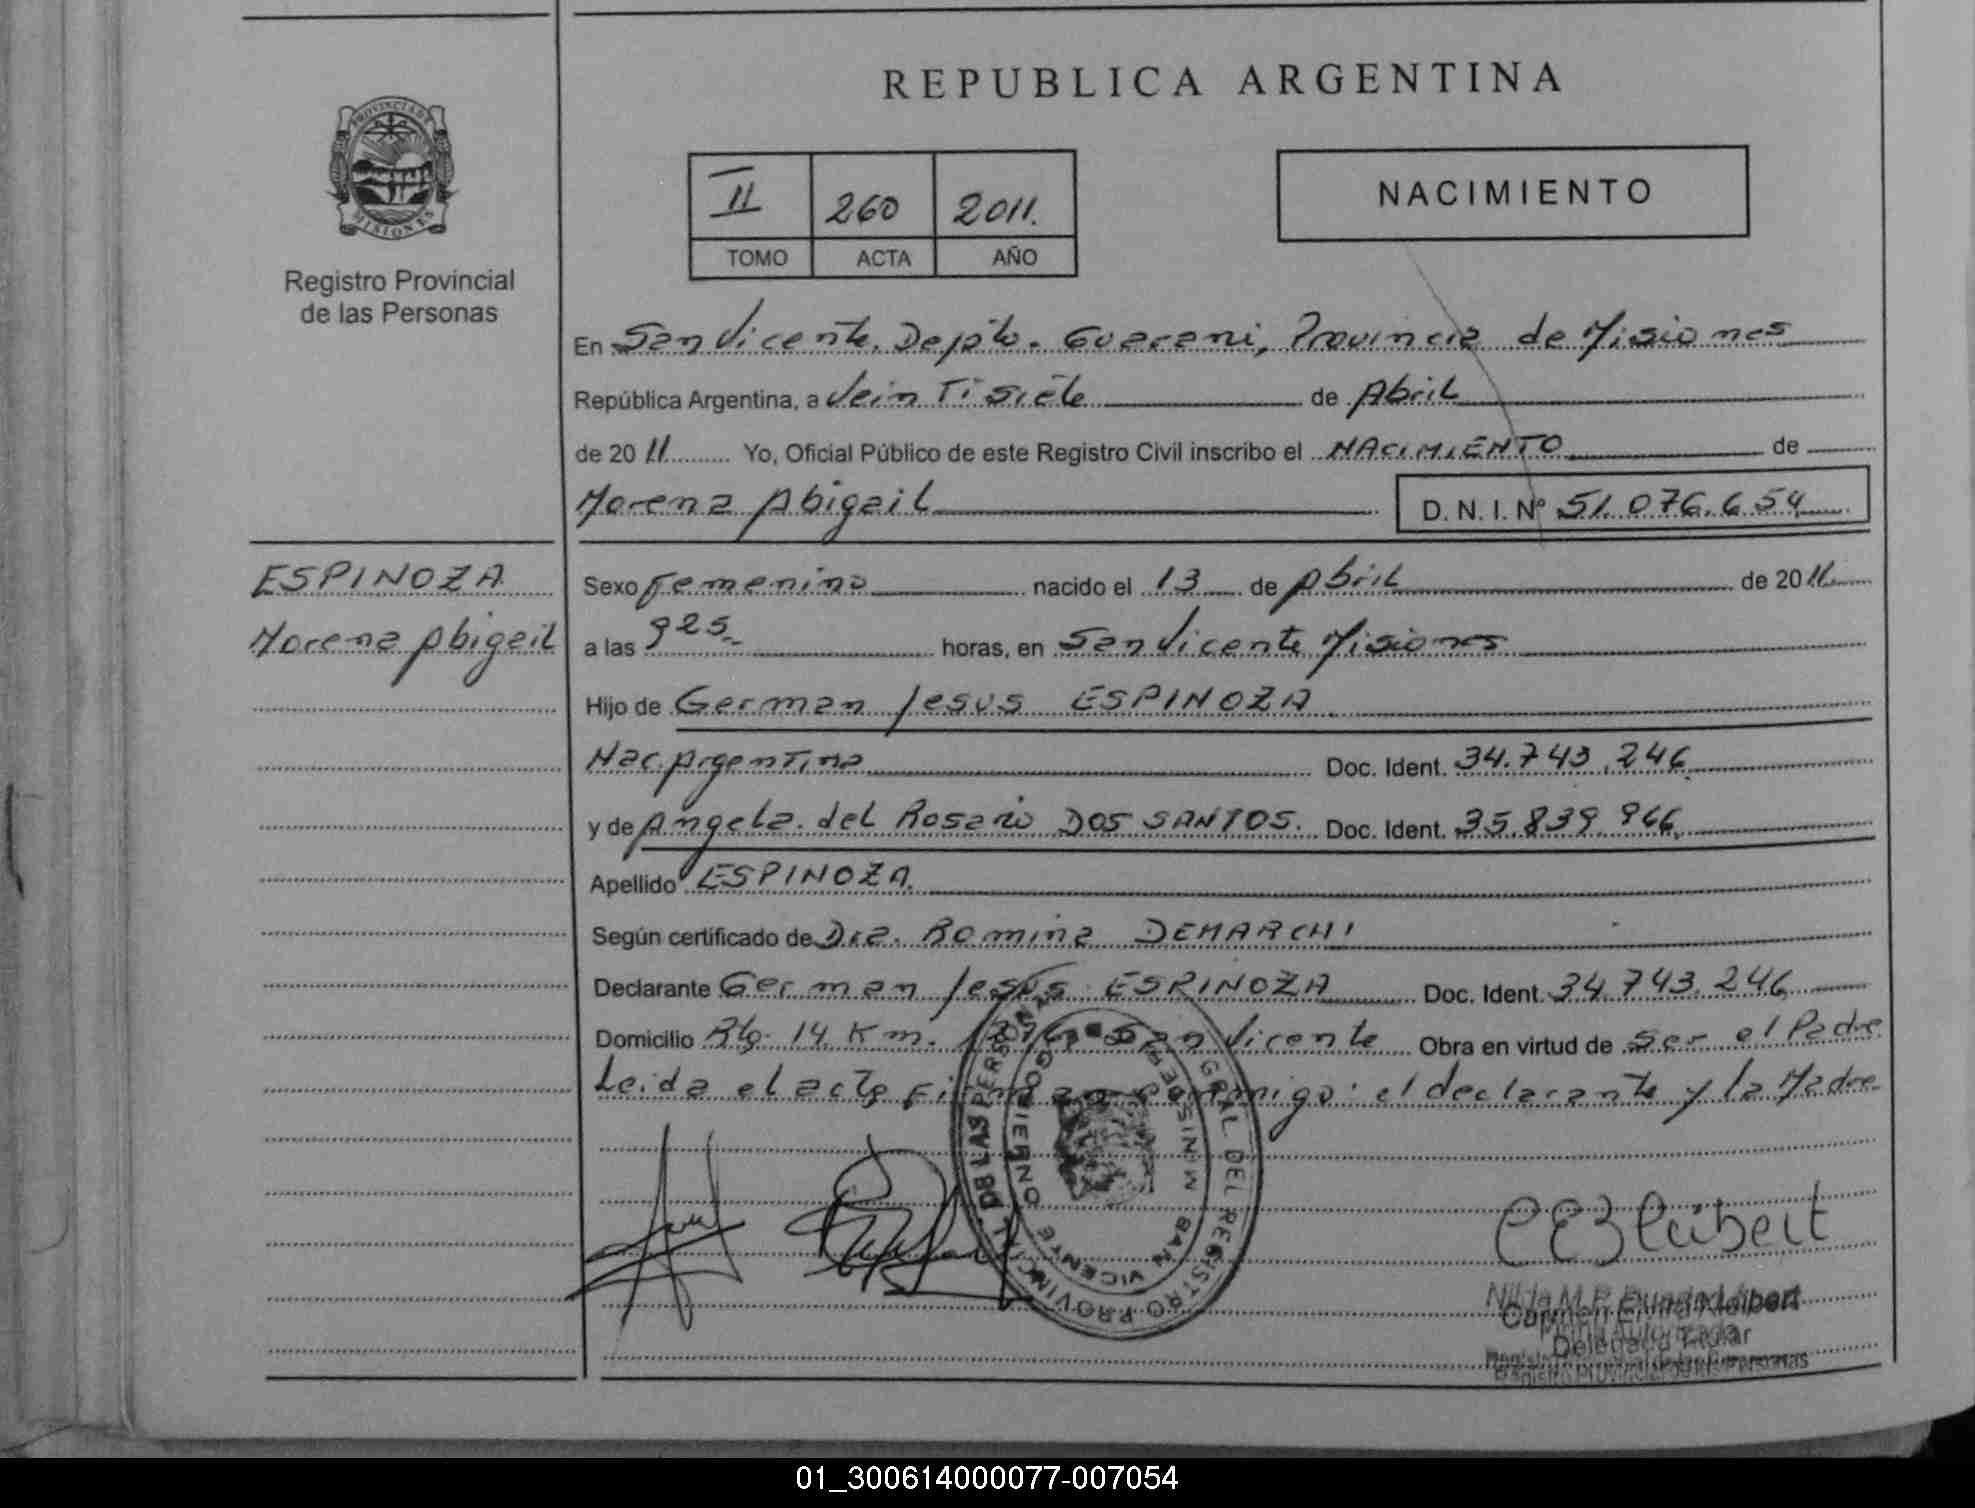 REPUBLICA ARGENTINA
PROVINCIA DE
MISIONES
Registro Provincial
de las Personas
II 260 2011.
TOMO ACTA AÑO
NACIMIENTO
En San Vicente. Depto. Guarani, Provincia de Misiones
República Argentina, a Vein Tisiete de Abril
de 2011 Yo, Oficial Público de este Registro Civil inscribo el NACIMIENTO de
Morena Abigail D. N. I. Nº 51.076.654
ESPINOZA
Morena Abigail
Sexo Femenino nacido el 13 de Abril de 2011
a las 925 horas, en San Vicente Misiones
Hijo de German Jesus ESPINOZA
Nac. Argentina Doc. Ident. 34.743.246
y de Angela del Rosario DOS SANTOS. Doc. Ident. 35.839.966
Apellido ESPINOZA.
Según certificado de Dra. Romina DEMARCHI
Declarante German Jesus ESPINOZA Doc. Ident. 34.743.246
Domicilio Rta. 14 Km. San Vicente Obra en virtud de ser el Padre
Leida el acta Firman conmigo: el declarante y la Madre
GRAL. DEL REGISTRO PROVINCIAL DE LAS PERSONAS
MINISTERIO DE GOBIERNO
SAN VICENTE
Delegada Titular
01_300614000077-007054